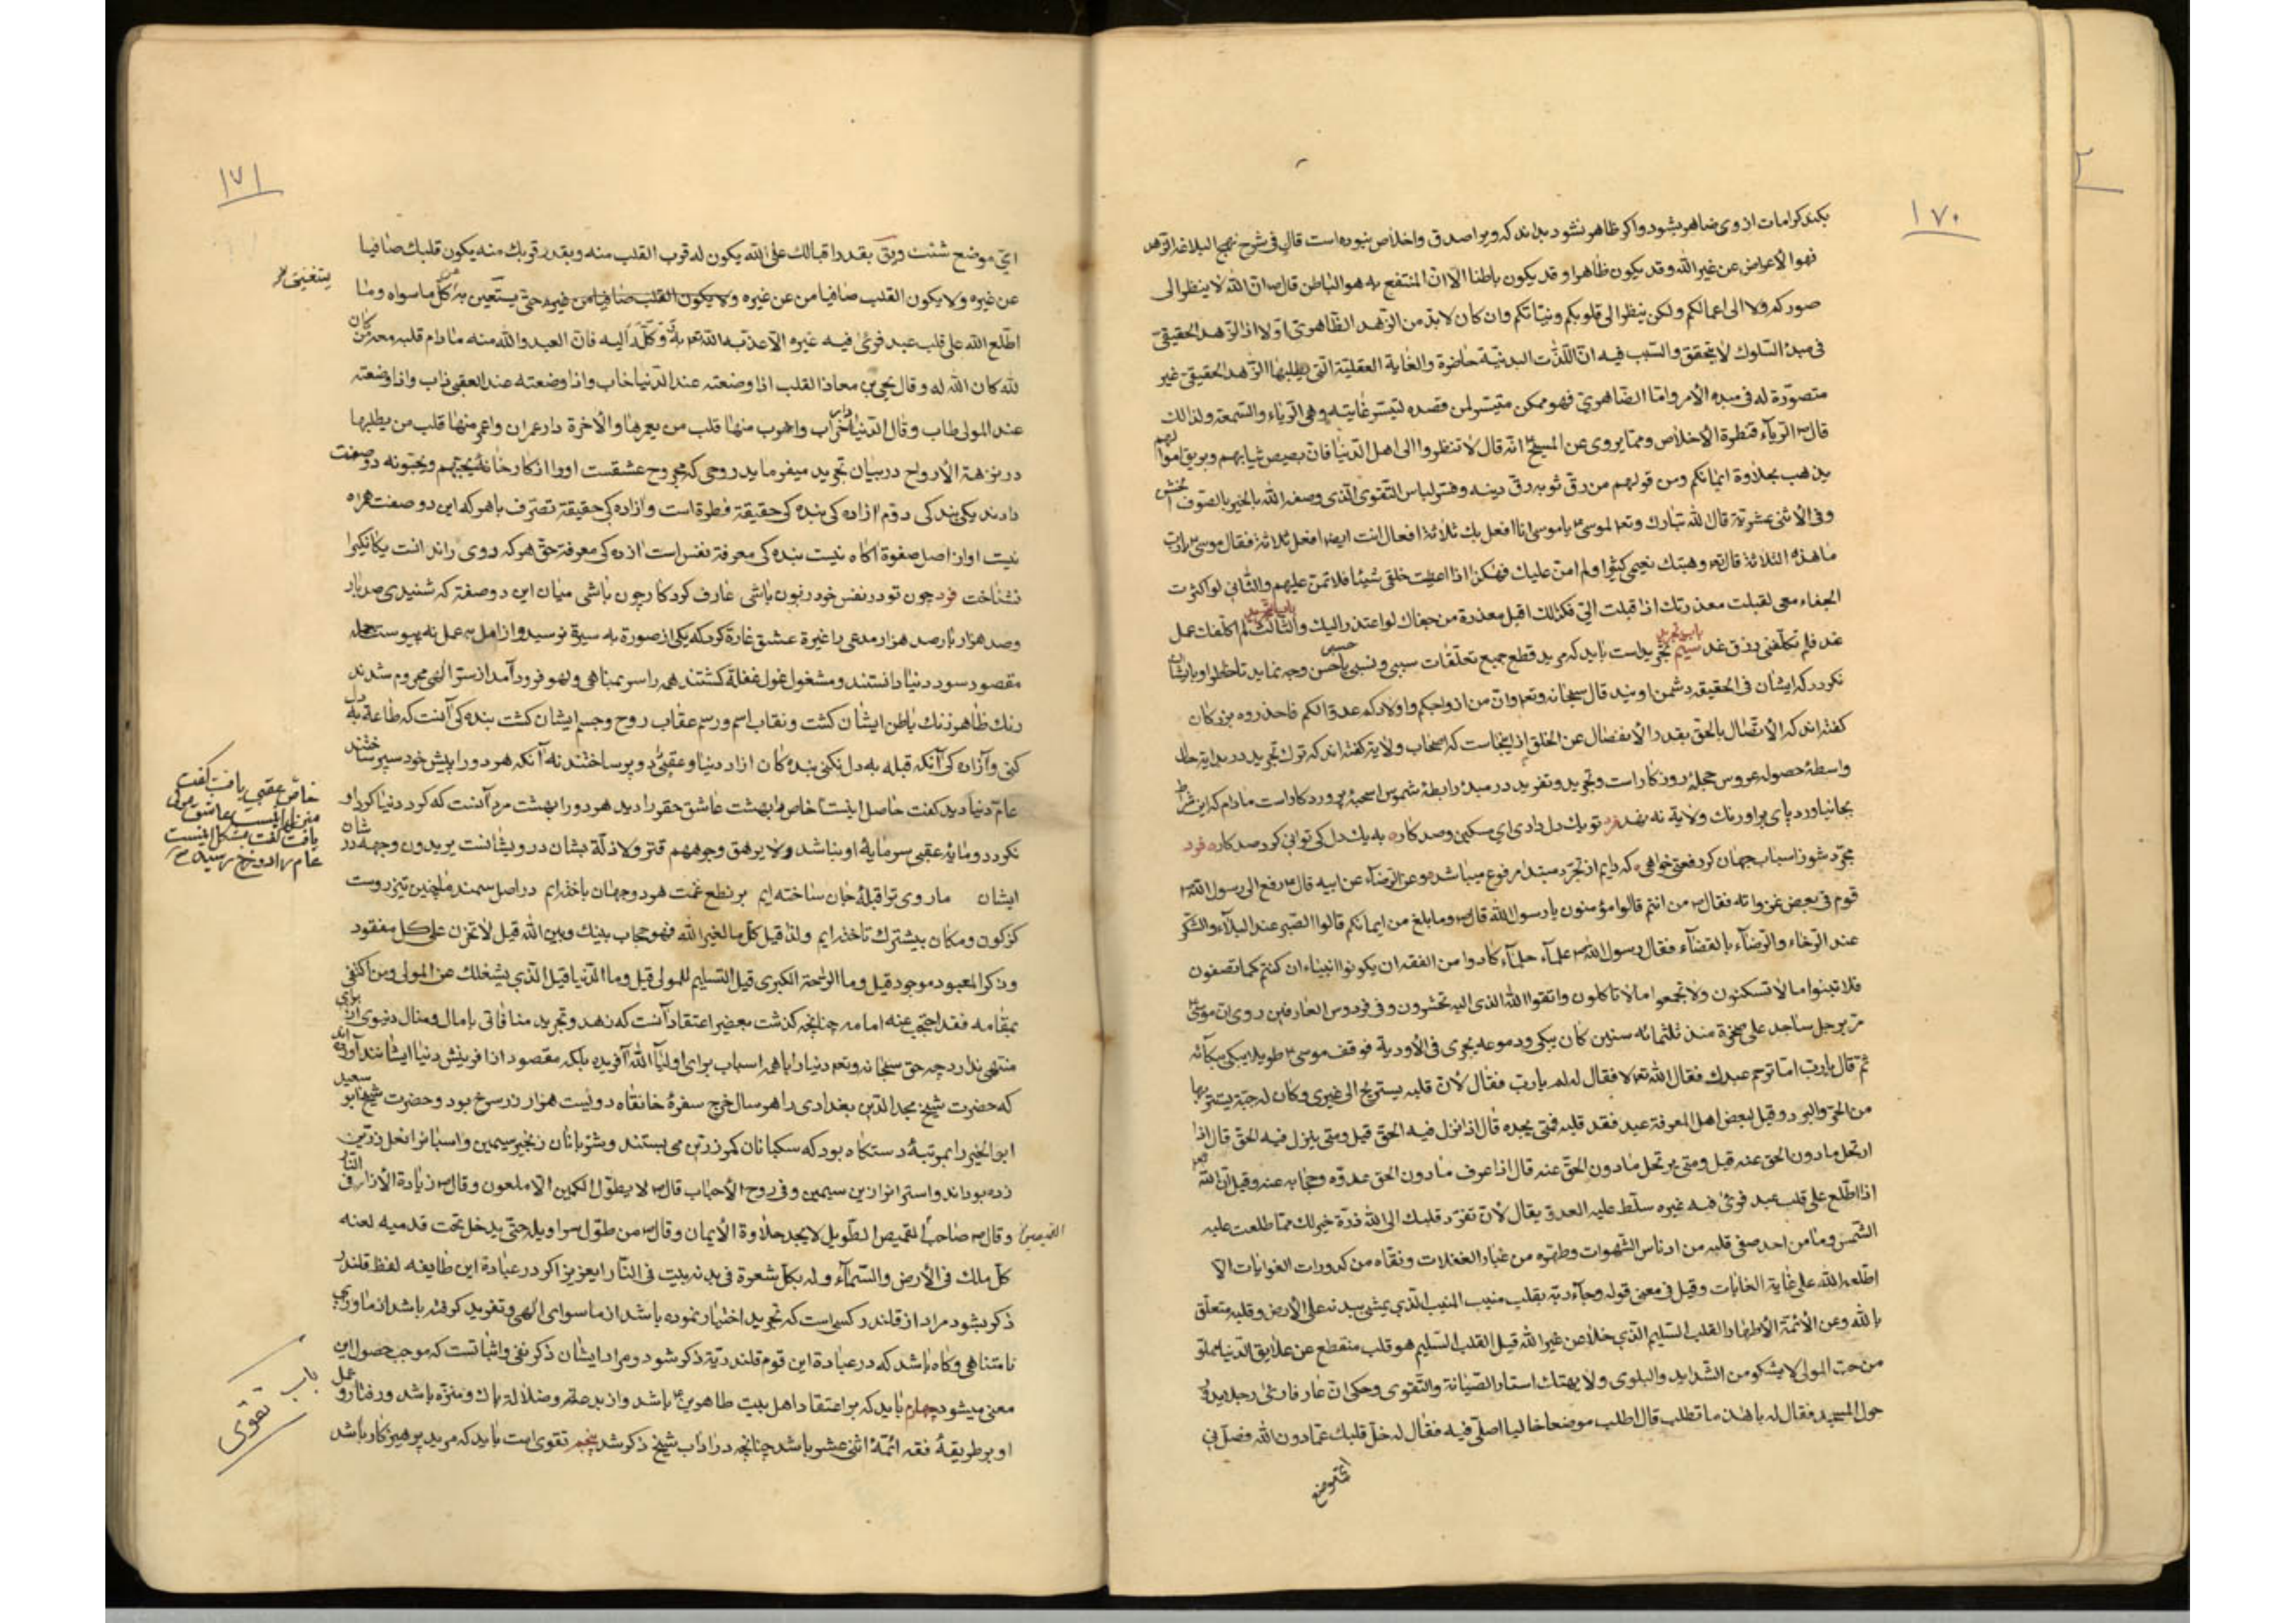 ١٧٠
بکند کرامات از وی ضاهر بشود و اکر ظاهر نشود بداند که ویرا صدق و اخلاص نبوده است قال فی شرح نهج البلاغه الزهد
فهو الاعراض عن غیر الله وقد یکون ظاهرا و قد یکون باطنا الا ان المنتفع به هو الباطن قال ان الله لا ینظر الی
صورکم ولا الی اعمالکم ولکن ینظر الی قلوبکم ونیاتکم وان کان لابد من الزهد الظاهری اولا اذ الزهد الحقیقی
فی مبدء السلوک لا یتحقق والسبب فیه ان اللذات البدنیة حاضرة والغایة العقلیة التی یطلبها الزهد الحقیقی غیر
متصورة له فی مبدء الامر واما الضاهری فهو ممکن متیسر لمن قصده لتیسر غایته وهی الریاء والسمعة ولذالک
قال الریاء قنطرة الاخلاص ومما یروی عن المسیح انه قال لا تنظروا الی اهل الدنیا فان بصیص ثیابهم وبریق اموالهم
یذهب بحلاوة ایمانکم ومن قولهم من رق ثوبه رق دینه وفسر لباس التقوی الذی وصفه الله بالخیر بالصوف الخشن
وفی الاثنی عشریة قال الله تبارک وتع لموسی یا موسی انا افعل بک ثلاثة افعال انت ایضا افعل ثلاثة فقال موسی یا رب
ما هذه الثلاثة قال تع وهبتک نعیمی کثیرا ولم امن علیک فهکذا اذا اعطیت خلقی شیئا فلا تمن علیهم والثانی لو اکثرت
الجفاء معی لقبلت معذرتک اذا قبلت الی فکذالک اقبل معذرة من جفاک لو اعتذر الیک والثالث لم اکلفک عمل
باب تجرید
غد فلم تکلفنی رزق غد سیم تجرید است باید که مرید قطع جمیع تعلقات سببی و نسبی باحسن وجه نماید تا خاطر او بایشان
نکردد که ایشان فی الحقیقه دشمن اویند قال سبحانه وتع وان من ازواجکم واولادکم عدوا لکم فاحذروه بزرکان
کفته اند که الاتصال بالحق بقدر الانفصال عن الخلق از اینجاست که اصحاب ولایة کفته اند که ترک تجرید در بدایة حال
واسطهٔ حصول عروس حجلهٔ روزکار است و تجرید و تفرید در مبدء رابطهٔ شموس اسحیهٔ پروردکار است مادام که این شرط
بجا نیاورد پای بر اورنک ولایة نه نهد فرد تو یک دل داری ای مسکین و صد کاره به یک دل کی توانی کرد صد کاره فرد
مجرد شو ز اسباب جهان کر رفعتی خواهی که دایم از تجرد مبتدا مرفوع میباشد وعن الرضا عن ابیه قال رفع الی رسول الله
قوم فی بعض غزواته فقال من انتم قالوا مؤمنون یا رسول الله قال وما بلغ من ایمانکم قالوا الصبر عند البلاء والشکر
عند الرخاء والرضاء بالقضاء فقال رسول الله علماء حلماء کادوا من الفقه ان یکونوا انبیاء ان کنتم کما تصفون
فلا تبنوا ما لا تسکنون ولا تجمعوا ما لا تاکلون واتقوا الله الذی الیه تحشرون وفی فردوس العارفین روی ان موسی
مر برجل ساجد علی صخرة منذ ثلثمائه سنین کان یبکی ودموعه یجری فی الاودیة فوقف موسی طویلا یبکی ببکائه
ثم قال یا رب اما ترحم عبدک فقال الله تع لا فقال له لم یا رب فقال لان قلبه یستریح الی غیری وکان له جبة یستتر بها
من الحر والبرد وقیل لبعض اهل المعرفة عبد فقد قلبه فمتی یجده قال اذا نزل فیه الحق قیل ومتی ینزل فیه الحق قال اذا
ارتحل مادون الحق عنه قیل ومتی یرتحل مادون الحق عنه قال اذا عرف مادون الحق عدوه وحجابه عنه وقیل ان الله تع
اذا اطلع علی قلب عبد فرئ فیه غیره سلط علیه العدو یقال لان تفرد قلبک الی الله ذرة خیر لک مما طلعت علیه
الشمس وما من احد صفی قلبه من ادناس الشهوات وطهره من غبار الغفلات ونقاه من کدورات الغوایات الا
اطلعه الله علی غایة الغایات وقیل فی معنی قوله وجاء ربه بقلب منیب المنیب الذی یمشی ببدنه علی الارض وقلبه متعلق
بالله وعن الائمة الاطهار القلب السلیم الذی خلا عن غیر الله قیل القلب السلیم هو قلب منقطع عن علایق الدنیا مملو
من حب المولی لا یشکو من الشداید والبلوی ولا یهتک استار الصیانة والتقوی وحکی ان عارفا رئ رجلا یدور
حول المسجد فقال له یا هذا ما تطلب قال اطلب موضعا خالیا اصلی فیه فقال له خل قلبک عما دون الله فصل فی
ای موضع
١٧١
ای موضع شئت وبق بقدر اقبالک علی الله یکون له قرب القلب منه وبقدر قربک منه یکون قلبک صافیا
عن غیره ولا یکون القلب صافیا من عن غیره ولا یکون القلب صافیا من غیره حتی یستعین به عن کل ما سواه وما
یستغنی
اطلع الله علی قلب عبد فرئ فیه غیره الا عذبه الله تع به وکله الیه فان العبد والله منه مادام قلبه معه من کان
لله کان الله له وقال یحیی بن معاذ القلب اذا وضعته عند الدنیا خاب واذا وضعته عند العقبی ذاب واذا وضعته
عند المولی طاب وقال الدنیا دار خراب واخرب منها قلب من یعمرها والاخرة دار عمران واعمر منها قلب من یطلبها
در نزهة الارواح در بیان تجرید میفرماید روحی که مجروح عشقست او را از کارخانهٔ یحبهم و یحبونه دو صفت
دادند یکی بندکی دوم ازاده کی بنده کی حقیقة فطرة است و ازاده کی حقیقة تصرف باهر که این دو صفت همراه
نیست او از اصل صفوة اکاه نیست بنده کی معرفة نفس است ازده کی معرفة حق هر که روی راند انت یکانکی را
نشناخت فرد چون تو در نفس خود زبون باشی عارف کردکار چون باشی میان این دو صفة که شنیدی صد بار
وصد هزار بار صد هزار مدعی را غیرة عشق غارة کرد که یکی از صورة به سیرة نرسید و از امل به عمل نه پیوست جمله
مقصود سود دنیا دانستند و مشغول غول غفلة کشتند همه را سر بمناهی و لهو فرود آمد از سر الهی محروم شدند
رنک ظاهر زنک باطن ایشان کشت و نقاب اسم و رسم عقاب روح و جسم ایشان کشت بنده کی آنست که طاعة به دل
کنی و آزاده کی آنکه قبله به دل نکنی بنده کان ازاد دنیا و عقبی دو پر ساختند نه آنکه هر دو را پیش خود سپر ساختند
عام دنیا دید کفت حاصل اینست خاص را بهشت عاشق حق را دید هر دو را بهشت مرد آنست که کرد دنیا کرد او
خاص عقبی یافت کفت
عام راه دوزخ رسید
نکردد و مایهٔ عقبی سرمایهٔ او نباشد ولا یرهق وجوههم قتر ولا ذلة نشان درویشانست یریدون وجهه در شان
ایشان ما روی ترا قبلهٔ جان ساخته ایم بر نطع غمت هر دو جهان باخته ایم در اصل سمند ما چنین تیز روست
کز کون و مکان پیشترک تاخته ایم ولذا قیل کل ما لغیر الله فهو حجاب بینک وبین الله قیل لا تحزن علی کل مفقود
وذکر المعبود موجود قیل وما الراحة الکبری قیل التسلیم للمولی قیل وما الدنیا قیل الذی یشغلک عن المولی ومن اکتفی
بمقامه فقد احتجب عنه امامه چنانچه کذشت بعضی را اعتقاد آنست که زهد و تجرید منافاتی بامال و منال دنیوی از برای
منتهی ندارد چه حق سبحانه وتع دنیا را با همه اسباب برای اولیاء الله آفریده بلکه مقصود از افرینش دنیا ایشانند آورده اند
که حضرت شیخ مجد الدین بغدادی را هر سال خرج سفرهٔ خانقاه دویست هزار زر سرخ بود و حضرت شیخ ابو سعید
ابو الخیر را بمرتبهٔ دستکاه بود که سکبانان کمر زرین می بستند و شتربانان زنجیر سیمین و اسبانرا نعل زرین
زده بوداند و استرانرا زین سیمین وفی روح الاحباب قال لا یطول الکمین الا ملعون وقال زیادة الازار فی النار
وقال صاحب القمیص الطویل لا یجد حلاوة الایمان وقال من طول سراویله حتی یدخل تحت قدمیه لعنه
کل ملک فی الارض والسماء وله بکل شعرة فی بدنه بیت فی النار ایعزیز اکر در عبادة این طایفه لفظ قلندر
ذکر بشود مراد از قلندر کسی است که تجرید اختیار نموده باشد از ماسوای الهی و تفرید کرفته باشد از ماورای
نامتناهی وکاه باشد که در عبادة این قوم قلندریه ذکر شود و مراد ایشان ذکر نفی و اثباتست که موجب حصول این
معنی میشود چهارم باید که بر اعتقاد اهل بیت طاهرین باشد و از بدعة و ضلالة پاک و منزه باشد و رفتار و عمل
او بر طریقهٔ فقه ائمهٔ اثنی عشر باشد چنانچه در اداب شیخ ذکر شد پنجم تقوی است باید که مرید پرهیزکار باشد
باب تقوی